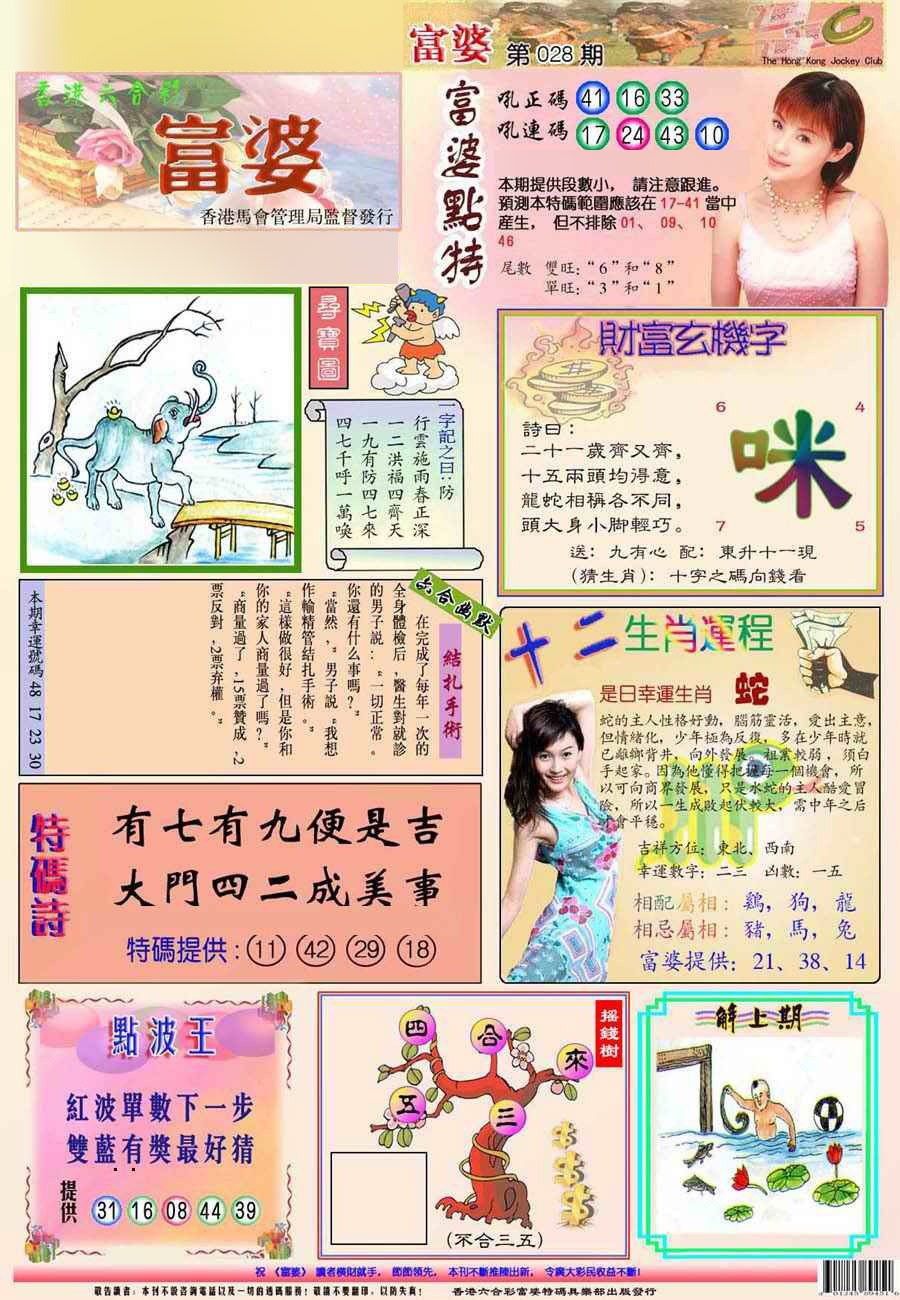 富婆 第028期
The Hong Kong Jockey Club
香港六合彩
富婆
香港馬會管理局監督發行
富婆點特
吼正碼 41 16 33
吼連碼 17 24 43 10
本期提供段數小， 請注意跟進。
預測本特碼範圍應該在 17-41 當中
產生， 但不排除 01、 09、 10
46
尾數 雙旺:“6”和“8”
單旺:“3”和“1”
尋寶圖
一字記之曰:防
行雲施雨春正深
一二洪福四齊天
一九有防四七來
四七千呼一萬喚
財富玄機字
詩曰:
二十一歲齊又齊，
十五兩頭均得意，
龍蛇相稱各不同，
頭大身小脚輕巧。
6 4
咪
7 5
送: 九有心 配: 東升十一現
(猜生肖): 十字之碼向錢看
六合幽默
結扎手術
在完成了每年一次的
全身體檢后,醫生對就診
的男子說:“一切正常。
你還有什么事嗎?”
“當然,”男子說“我想
作輸精管結扎手術。”
“這樣做很好,但是你和
你的家人商量過了嗎?”
“商量過了,15票贊成,2
票反對,2票弃權。”
本期幸運號碼 48 17 23 30
十二生肖運程
是日幸運生肖 蛇
蛇的主人性格好動，腦筋靈活，愛出主意，
但情緒化，少年極為反復，多在少年時就
已離鄉背井，向外發展。祖業較弱，須白
手起家。因為他懂得把握每一個機會，所
以可向商界發展，只是水蛇的主人酷愛冒
險，所以一生成敗起伏較大，需中年之后
才會平穩。
吉祥方位: 東北、西南
幸運數字: 二三 凶數: 一五
相配屬相: 鷄，狗，龍
相忌屬相: 豬，馬，兔
富婆提供: 21、38、14
特碼詩
有七有九便是吉
大門四二成美事
特碼提供: 11 42 29 18
點波王
紅波單數下一步
雙藍有獎最好猜
提供 31 16 08 44 39
搖錢樹
四 合 來
五 三
(不合三五)
解上期
祝 《富婆》 讀者橫財就手， 節節領先， 本刊不斷推陳出新， 令廣大彩民收益不斷!
敬告讀者: 本刊不設咨詢電話以及一切的透碼服務! 敬請不要翻印，以防失真! 香港六合彩富婆特碼俱樂部出版發行